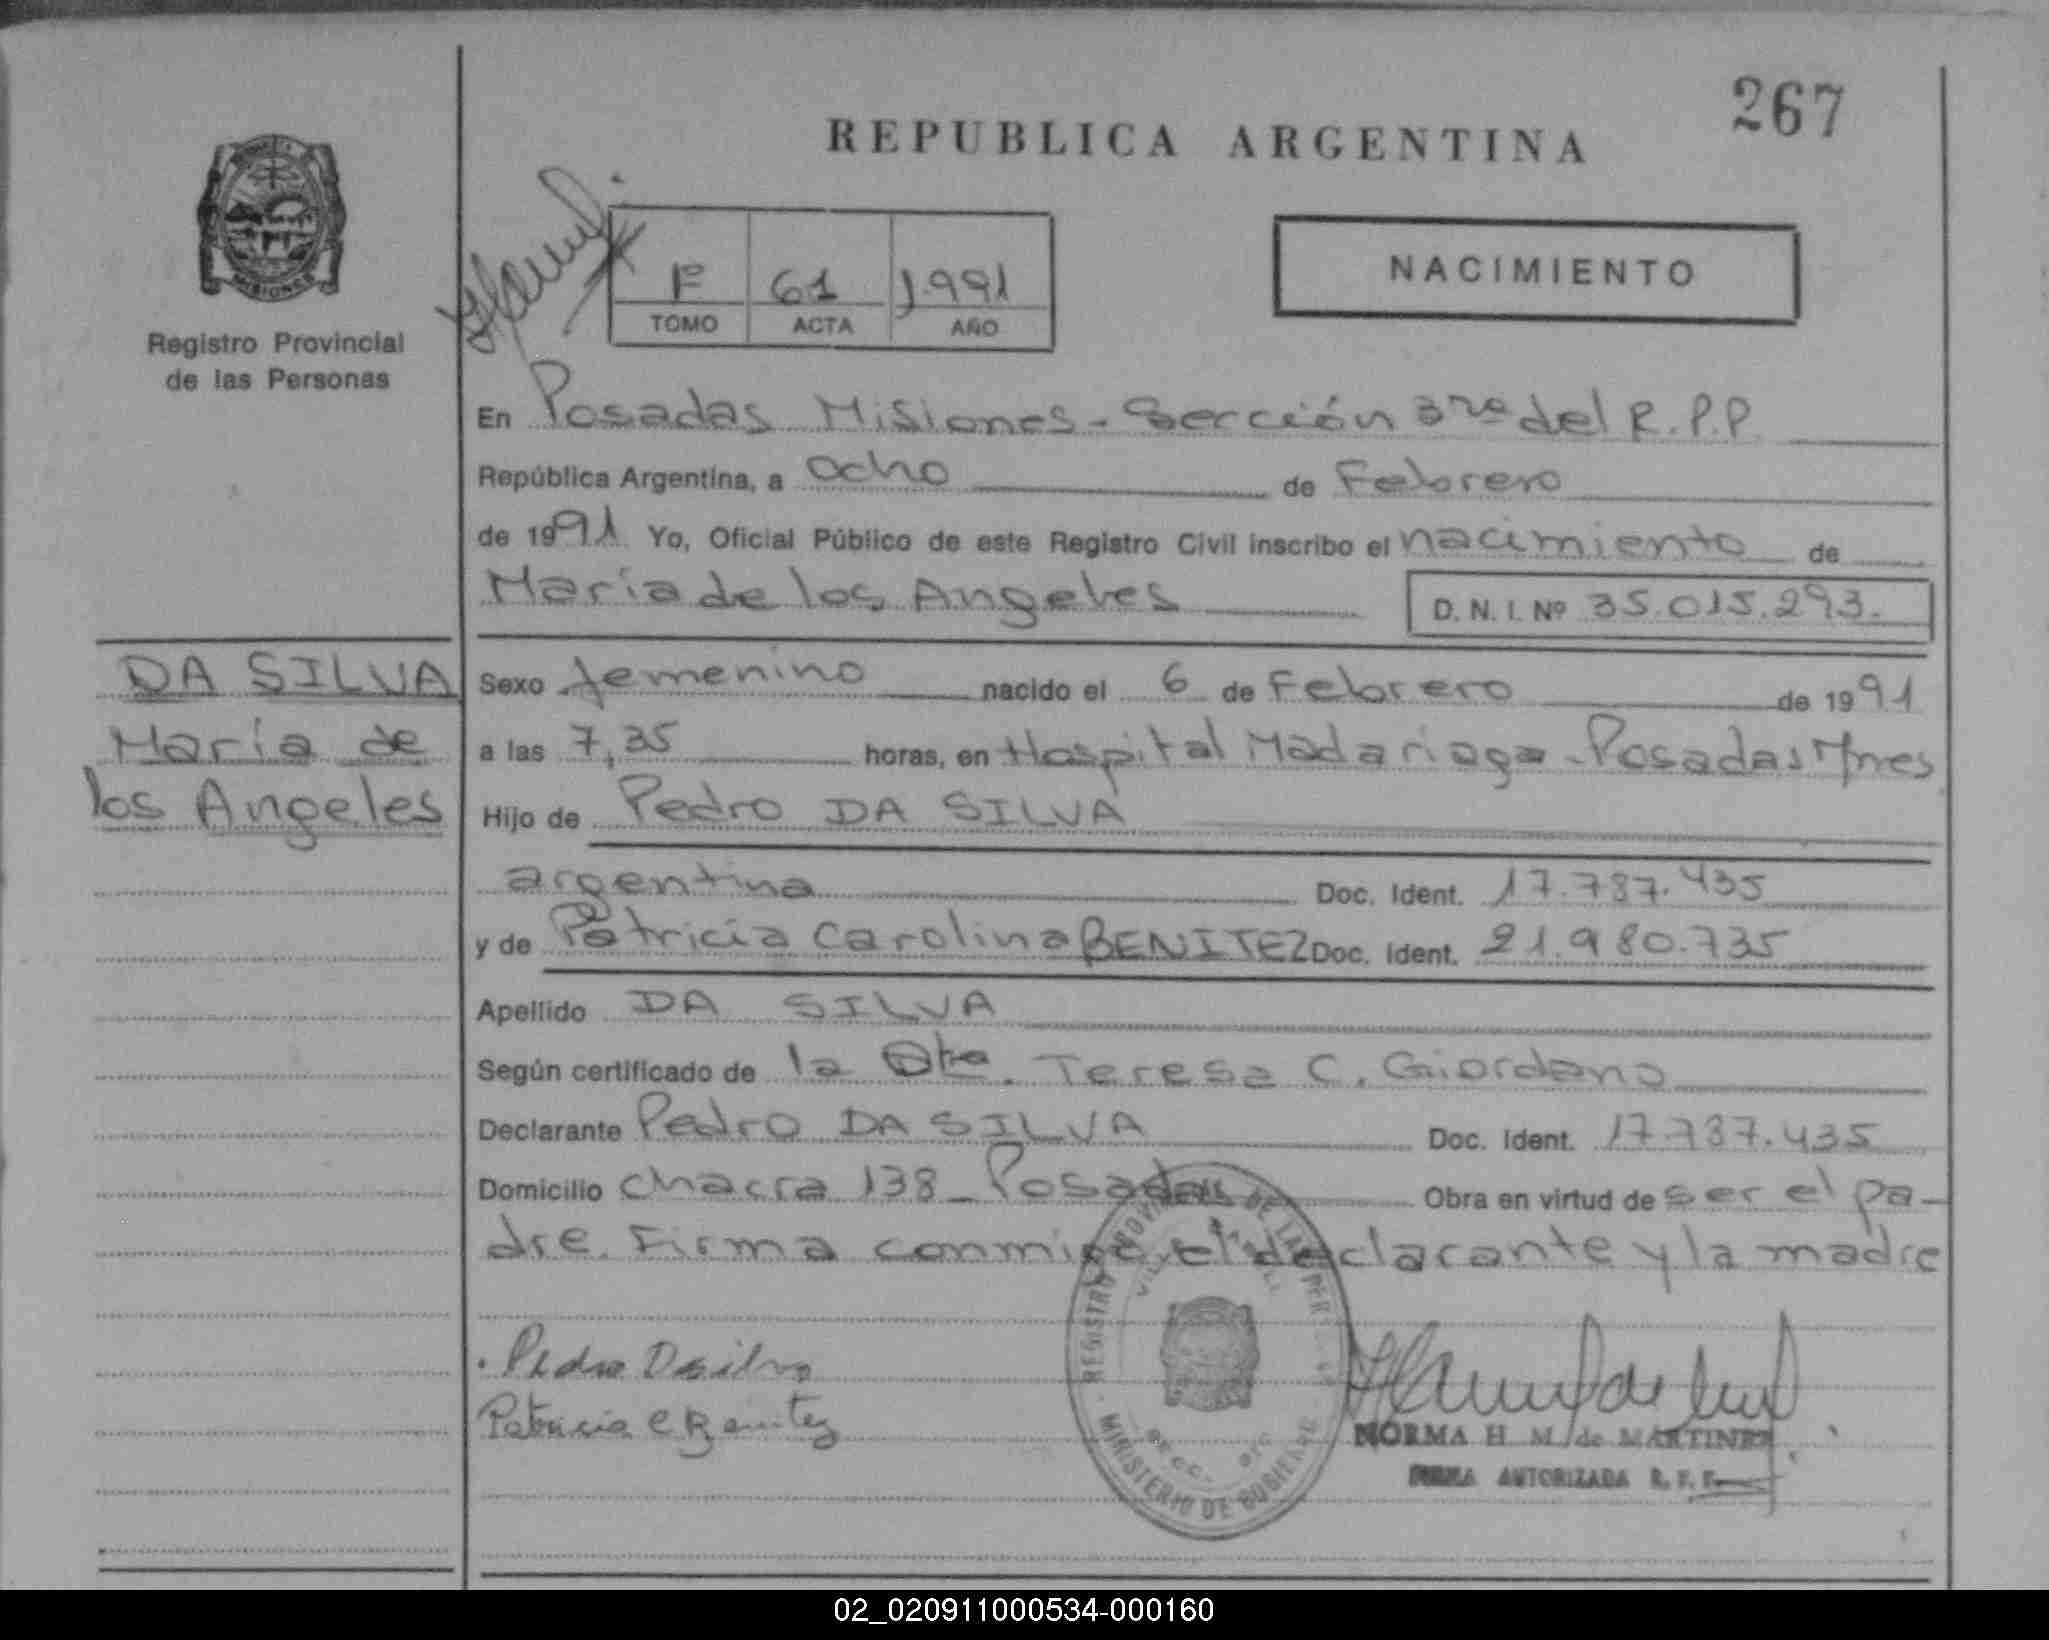 267
REPUBLICA ARGENTINA
MISIONES
Registro Provincial
de las Personas
1º 61 1.991
TOMO ACTA AÑO
NACIMIENTO
En Posadas Misiones - Sección 3ra del R.P.P
República Argentina, a ocho de Febrero
de 1991 Yo, Oficial Público de este Registro Civil inscribo el nacimiento de
María de los Angeles
D. N. I. Nº 35.015.293.
DA SILVA
María de
los Angeles
Sexo femenino nacido el 6 de Febrero de 1991
a las 7,35 horas, en Hospital Madariaga - Posadas Mnes
Hijo de Pedro DA SILVA
argentina Doc. Ident. 17.787.435
y de Patricia Carolina BENITEZ Doc. Ident. 21.980.735
Apellido DA SILVA
Según certificado de la Teresa C. Giordano
Declarante Pedro DA SILVA Doc. Ident. 17.787.435
Domicilio chacra 138 - Posadas Obra en virtud de ser el pa-
dre. Firma conmigo el declarante y la madre
Pedro Dasilva
Patricia C Benitez
REGISTRO PROVINCIAL DE LAS PERSONAS
MINISTERIO DE GOBIERNO
NORMA H. M. de MARTINEZ
FIRMA AUTORIZADA R. P. P.
02_020911000534-000160